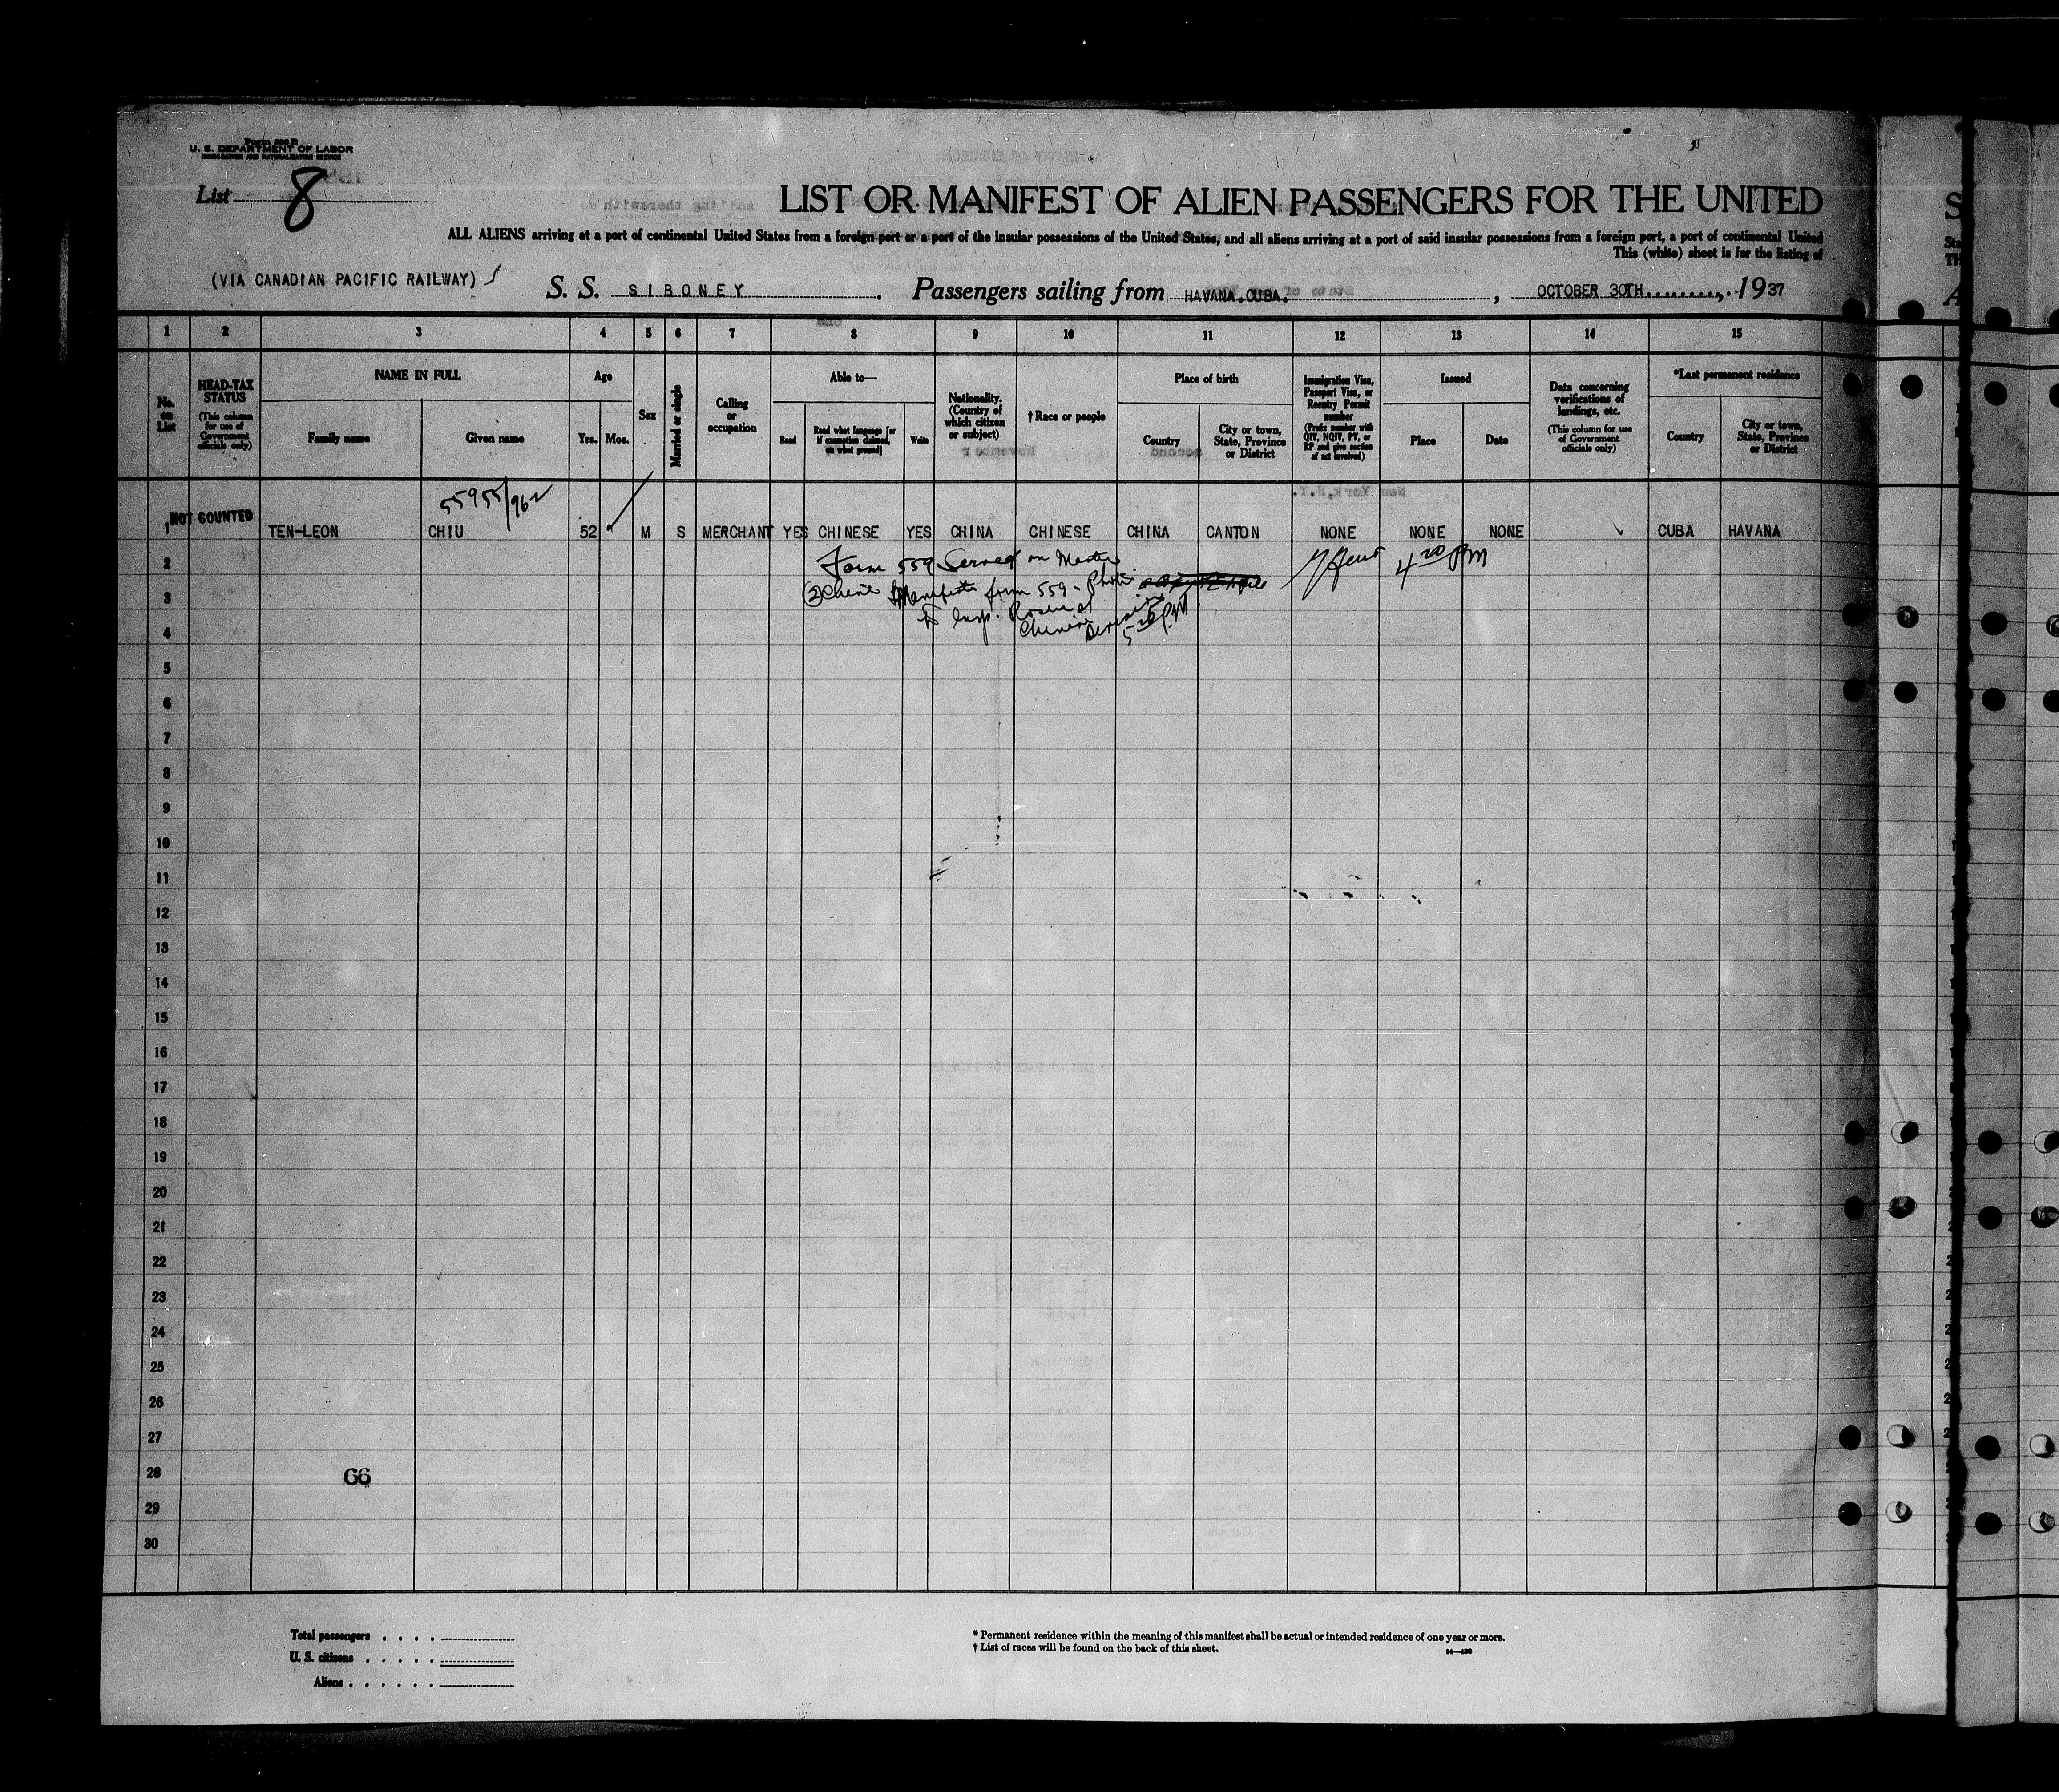 Form 500 B
U. S. DEPARTMENT OF LABOR
IMMIGRATION AND NATURALIZATION SERVICE
List 8
LIST OR MANIFEST OF ALIEN PASSENGERS FOR THE UNITED
ALL ALIENS arriving at a port of continental United States from a foreign port or a port of the insular possessions of the United States, and all aliens arriving at a port of said insular possessions from a foreign port, a port of continental United
This (white) sheet is for the listing of
(VIA CANADIAN PACIFIC RAILWAY) S. S. SIBONEY. Passengers sailing from HAVANA.CUBA. , OCTOBER 30TH, 1937
1 2 3 4 5 6 7 8 9 10 11 12 13 14 15
No. on List
HEAD-TAX STATUS (This column for use of Government officials only)
NAME IN FULL
Family name Given name
Age
Yrs. Mos.
Sex
Married or single
Calling or occupation
Able to—
Read Read what language [or if exemption claimed, on what ground] Write
Nationality. (Country of which citizen or subject)
† Race or people
Place of birth
Country City or town, State, Province or District
Immigration Visa, Passport Visa, or Reentry Permit number (Prefix number with QIV, NQIV, PV, or RP and give section of act involved)
Issued
Place Date
Data concerning verifications of landings, etc. (This column for use of Government officials only)
*Last permanent residence
Country City or town, State, Province or District
55955/962
1 NOT COUNTED TEN-LEON CHIU 52 M S MERCHANT YES CHINESE YES CHINA CHINESE CHINA CANTON NONE NONE NONE CUBA HAVANA
2 Form 559 Served on Master 4 20 PM
3 Manifests form 559 - Photo
4 to Insp. Chinese Division 5 20 PM
5
6
7
8
9
10
11
12
13
14
15
16
17
18
19
20
21
22
23
24
25
26
27
28 66
29
30
Total passengers . . . .
U. S. citizens . . . . .
Aliens . . . . . .
* Permanent residence within the meaning of this manifest shall be actual or intended residence of one year or more.
† List of races will be found on the back of this sheet.
14—430